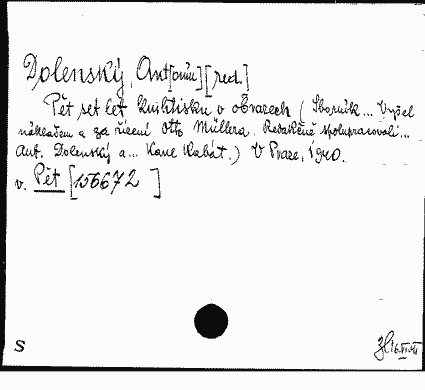 Dolenský, Ant[onín] [red.]
Pět set let knihtisku v obrazech (Sborník... Vyšel
nákladem a za řízení Otto Müllera. Redakčně spolupracovali...
Ant. Dolenský a... Karel Kabát.) V Praze, 1940.
v. Pět [156672 ]
S